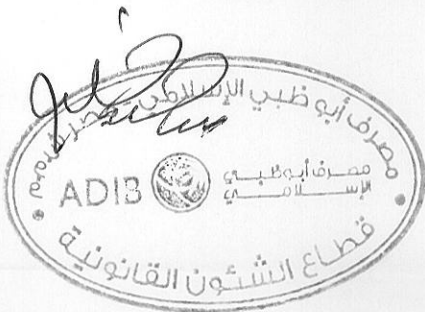 مصرف أبو ظبي الإسلامي - مصر ش.م.م
ADIB
مصرف أبوظبي
الإسلامي
قطاع الشئون القانونية